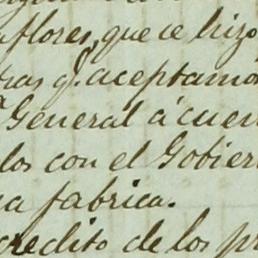 flores, que ce hizo
q.e aceptamo
General á cuen
los con el Gobier
a fabrica.
credito de los pr